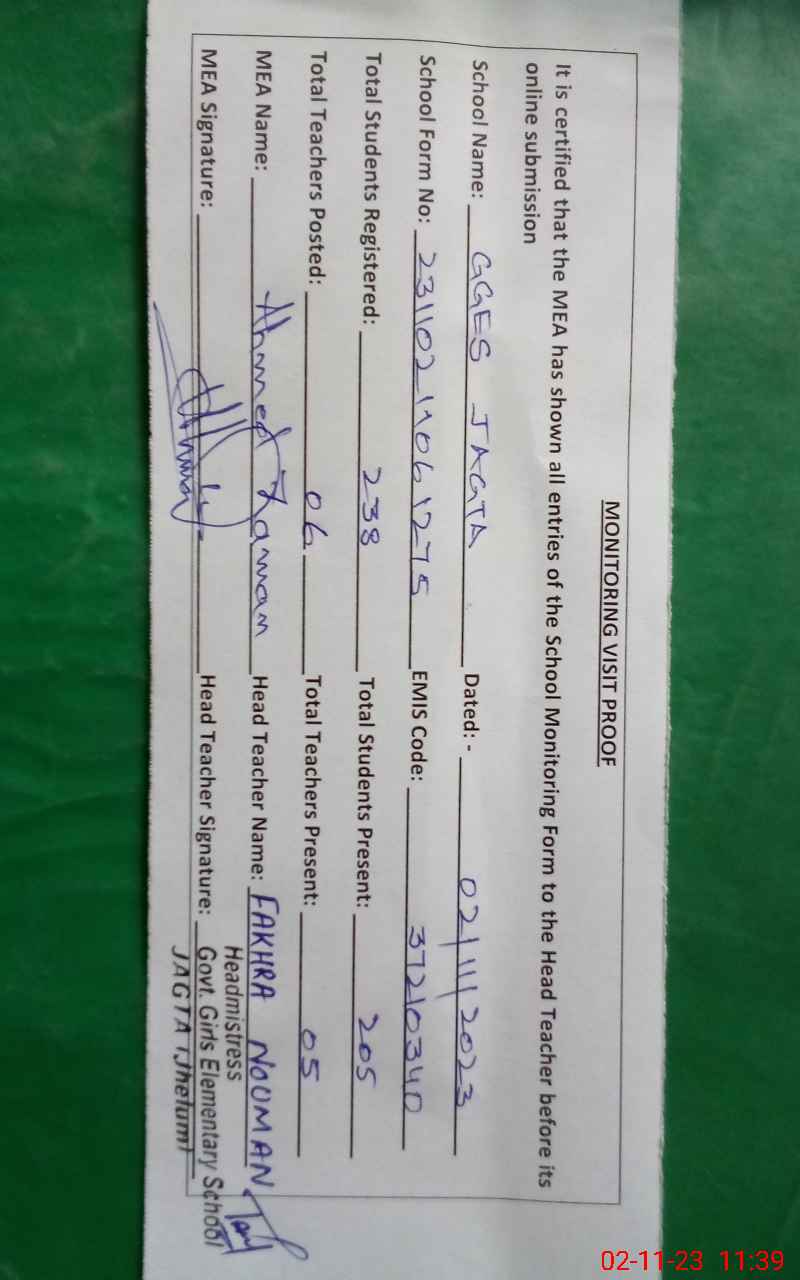 MONITORING VISIT PROOF
It is certified that the MEA has shown all entries of the School Monitoring Form to the Head Teacher before its
online submission
School Name: GGES JAGTA Dated: - 02/11/2023
School Form No: 23110211061275 EMIS Code: 37210340
Total Students Registered: 238 Total Students Present: 205
Total Teachers Posted: 06 Total Teachers Present: 05
MEA Name: Ahmed Zaman Head Teacher Name: FAKHRA NOUMAN
MEA Signature: Head Teacher Signature:
Headmistress
Govt. Girls Elementary School
JAGTA (Jhelum)
02-11-23 11:39